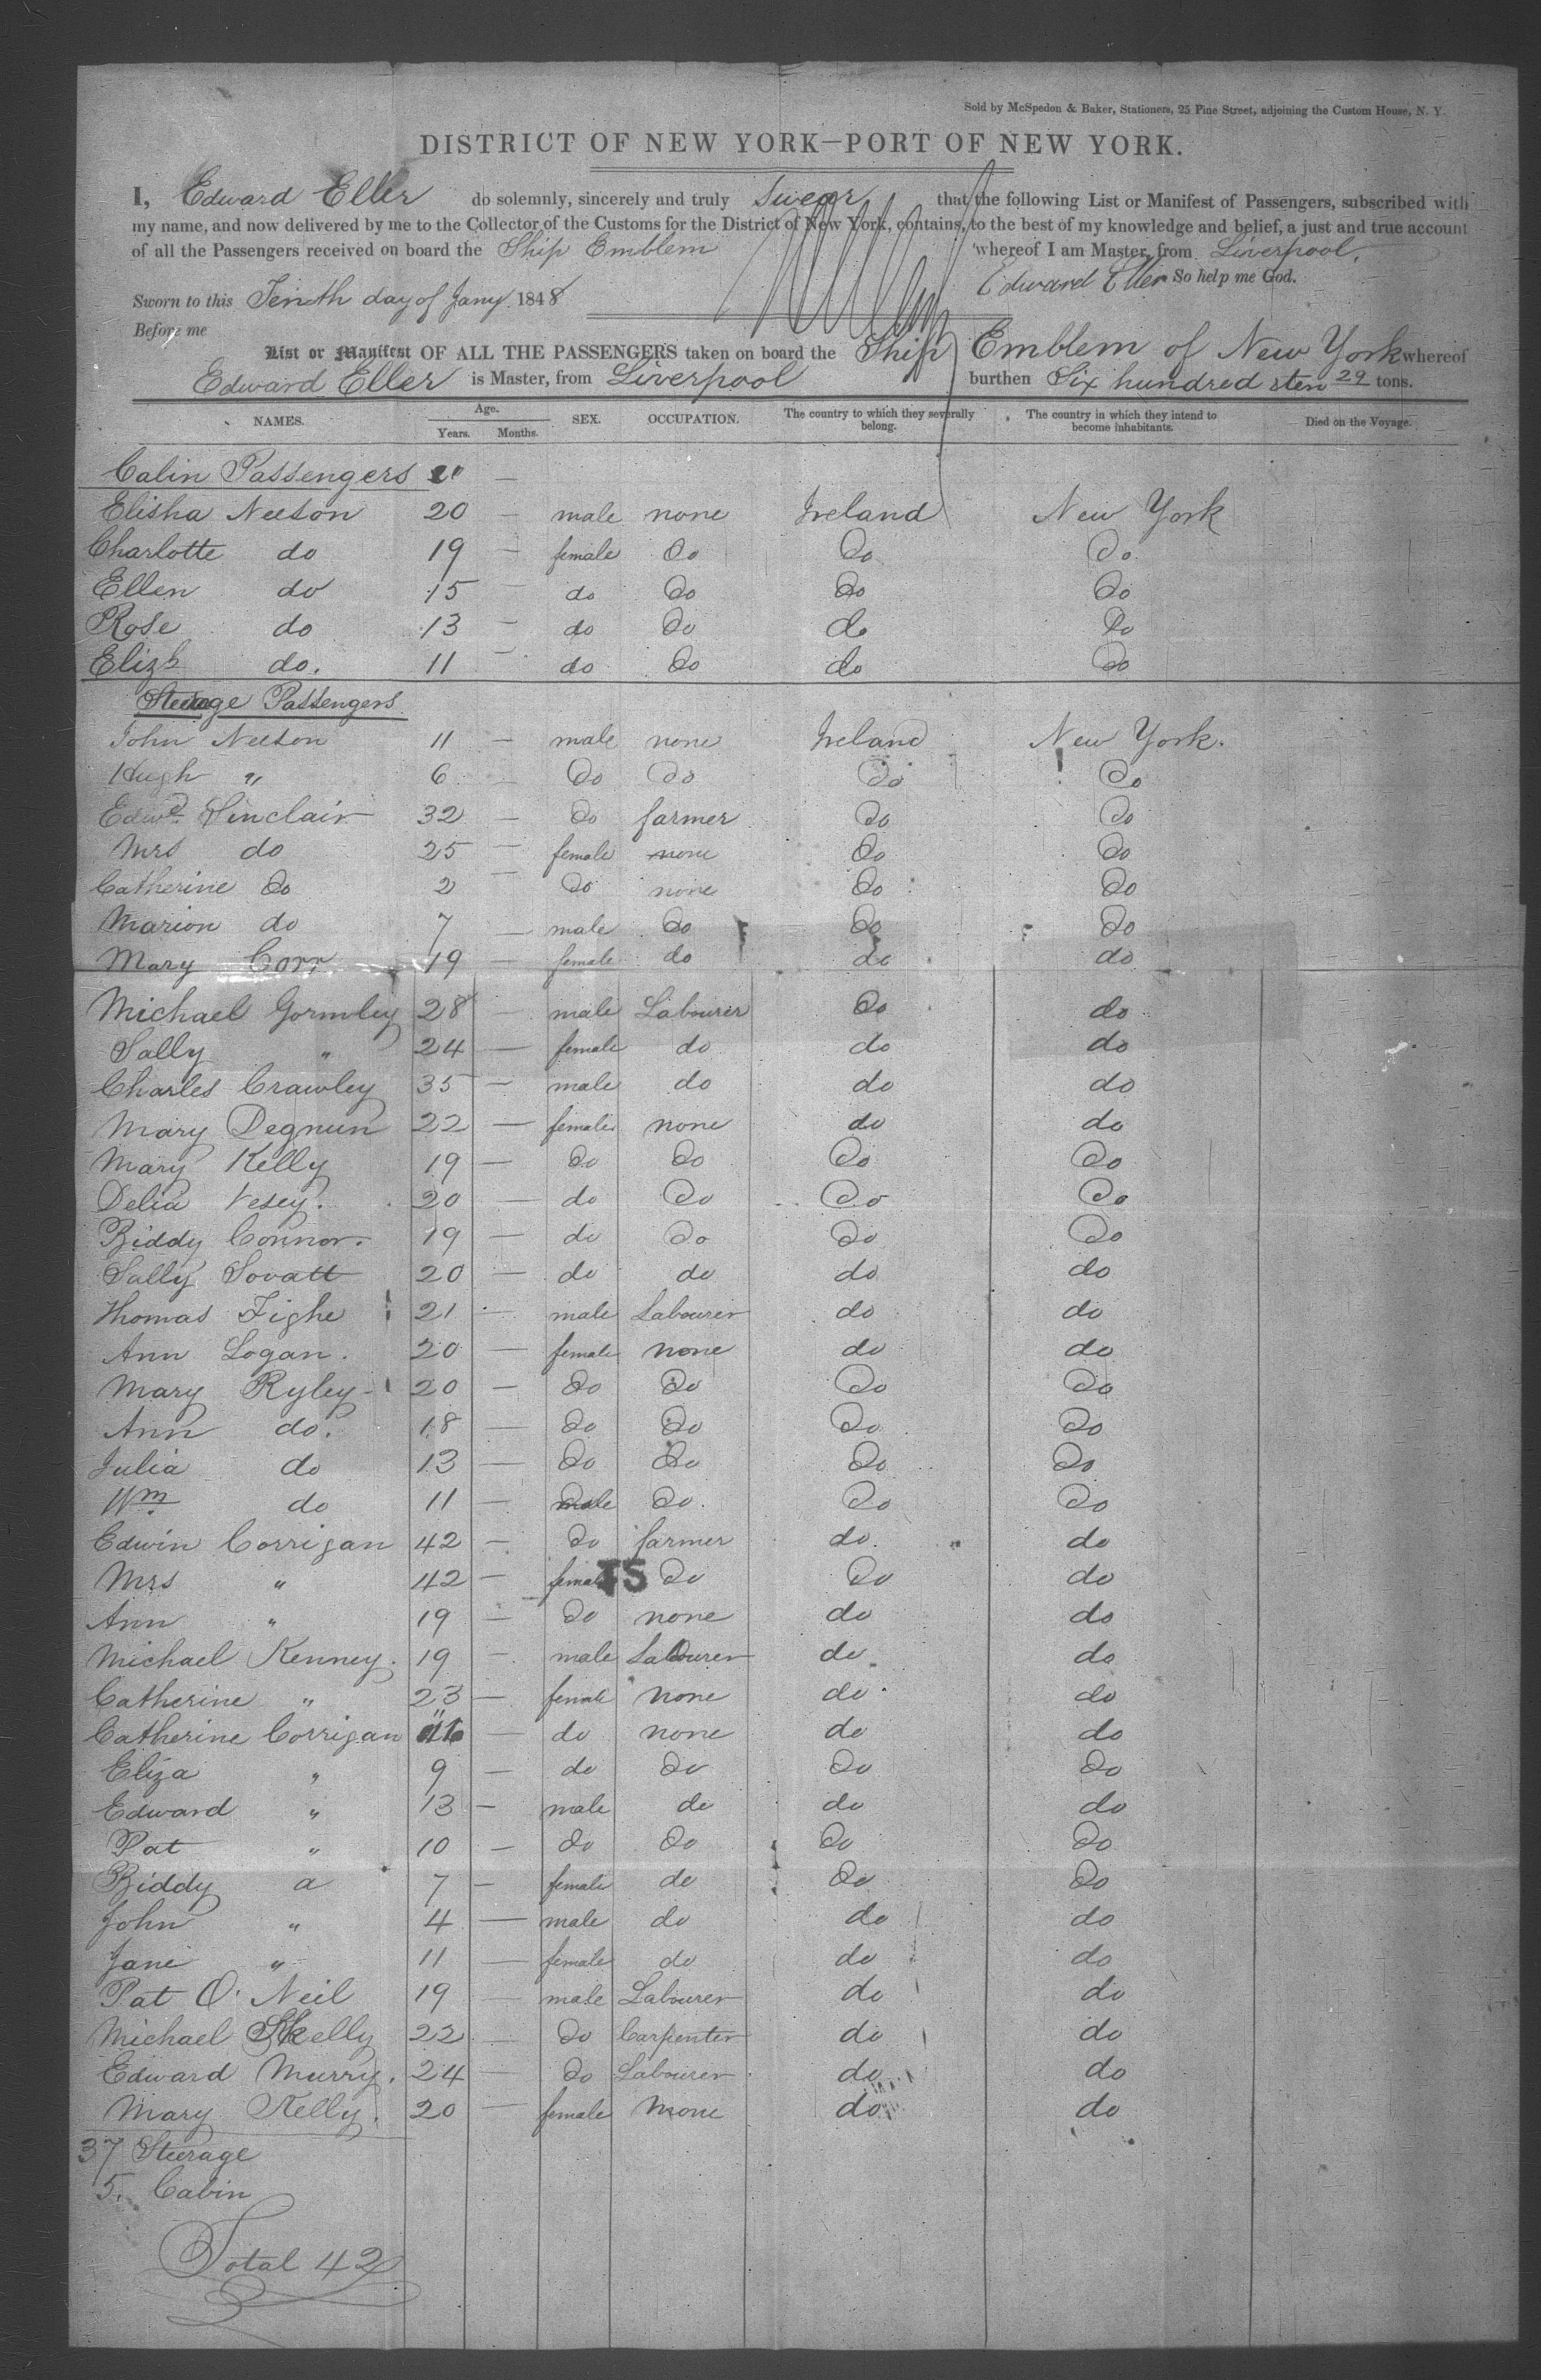 Sold by McSpedon & Baker, Stationers, 25 Pine Street, adjoining the Custom House, N. Y.
DISTRICT OF NEW YORK—PORT OF NEW YORK.
I, Edward Eller do solemnly, sincerely and truly swear that the following List or Manifest of Passengers, subscribed with
my name, and now delivered by me to the Collector of the Customs for the District of New York, contains, to the best of my knowledge and belief, a just and true account
of all the Passengers received on board the Ship Emblem whereof I am Master, from Liverpool.
Edward Eller So help me God.
Sworn to this Tenth day of Jany 1848
Before me
List or Manifest OF ALL THE PASSENGERS taken on board the Ship Emblem of New York whereof
Edward Eller is Master, from Liverpool burthen Six hundred & ten 29 tons.
NAMES. Age. Years. Months. SEX. OCCUPATION. The country to which they severally belong. The country in which they intend to become inhabitants. Died on the Voyage.
Cabin Passengers —
Elisha Neeson 20 — male none Ireland New York
Charlotte do 19 — female Do Do Do
Ellen do 15 — do Do Do Do
Rose do 13 — do Do do Do
Elizh do. 11 — do Do do Do
Steerage Passengers
John Neeson 11 — male none Ireland New York.
Hugh " 6 — Do Do Do Do
Edwd. Sinclair 32 — Do farmer Do Do
Mrs do 25 female none Do Do
Catherine Do 2 — Do none Do Do
Marion do 7 — male Do Do Do
Mary Corr 19 — female do do do
Michael Gormley 28 — male Labourer Do do
Sally " 24 — female do do do
Charles Crawley 35 — male do do do
Mary Degnun 22 — female none do do
Mary Kelly 19 — Do Do Do Do
Delia Vesey. 20 — do Do Do Do
Biddy Connor. 19 — do Do Do Do
Sally Sovatt 20 — do do do do
Thomas Tighe 21 — male Labourer do do
Ann Logan. 20 — female none do do
Mary Ryley 20 — Do Do Do Do
Ann do. 18 — Do Do Do Do
Julia do 13 — Do Do Do Do
Wm do 11 — male Do. Do Do
Edwin Corrigan 42 — Do farmer do. do
Mrs " 42 — female Do Do do
Ann " 19 — Do none do do
Michael Kenney. 19 — male Labourer do do
Catherine " 23 — female none do do
Catherine Corrigan — do none do do
Eliza " 9 — do Do Do Do
Edward " 13 — male do do do
Pat " 10 — do Do Do Do
Biddy a 7 — female do Do Do
John " 4 — male do do do
Jane " 11 — female do do do
Pat O'Neil 19 — male Labourer do do
Michael Skelly 22 — Do Carpenter do do
Edward Murry. 24 — Do Labourer do do
Mary Kelly. 20 — female none do do
37 Steerage
5. Cabin
Total 42